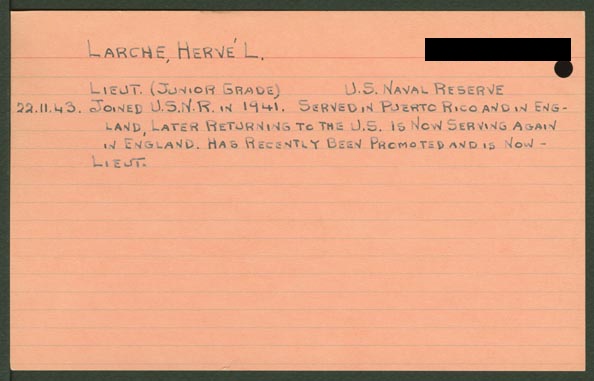 LARCHE, HERVÉ L.
LIEUT. (JUNIOR GRADE) U.S. NAVAL RESERVE
22.11.43. JOINED U.S.N.R. IN 1941. SERVED IN PUERTO RICO AND IN ENG-
LAND, LATER RETURNING TO THE U.S. IS NOW SERVING AGAIN
IN ENGLAND. HAS RECENTLY BEEN PROMOTED AND IS NOW -
LIEUT.